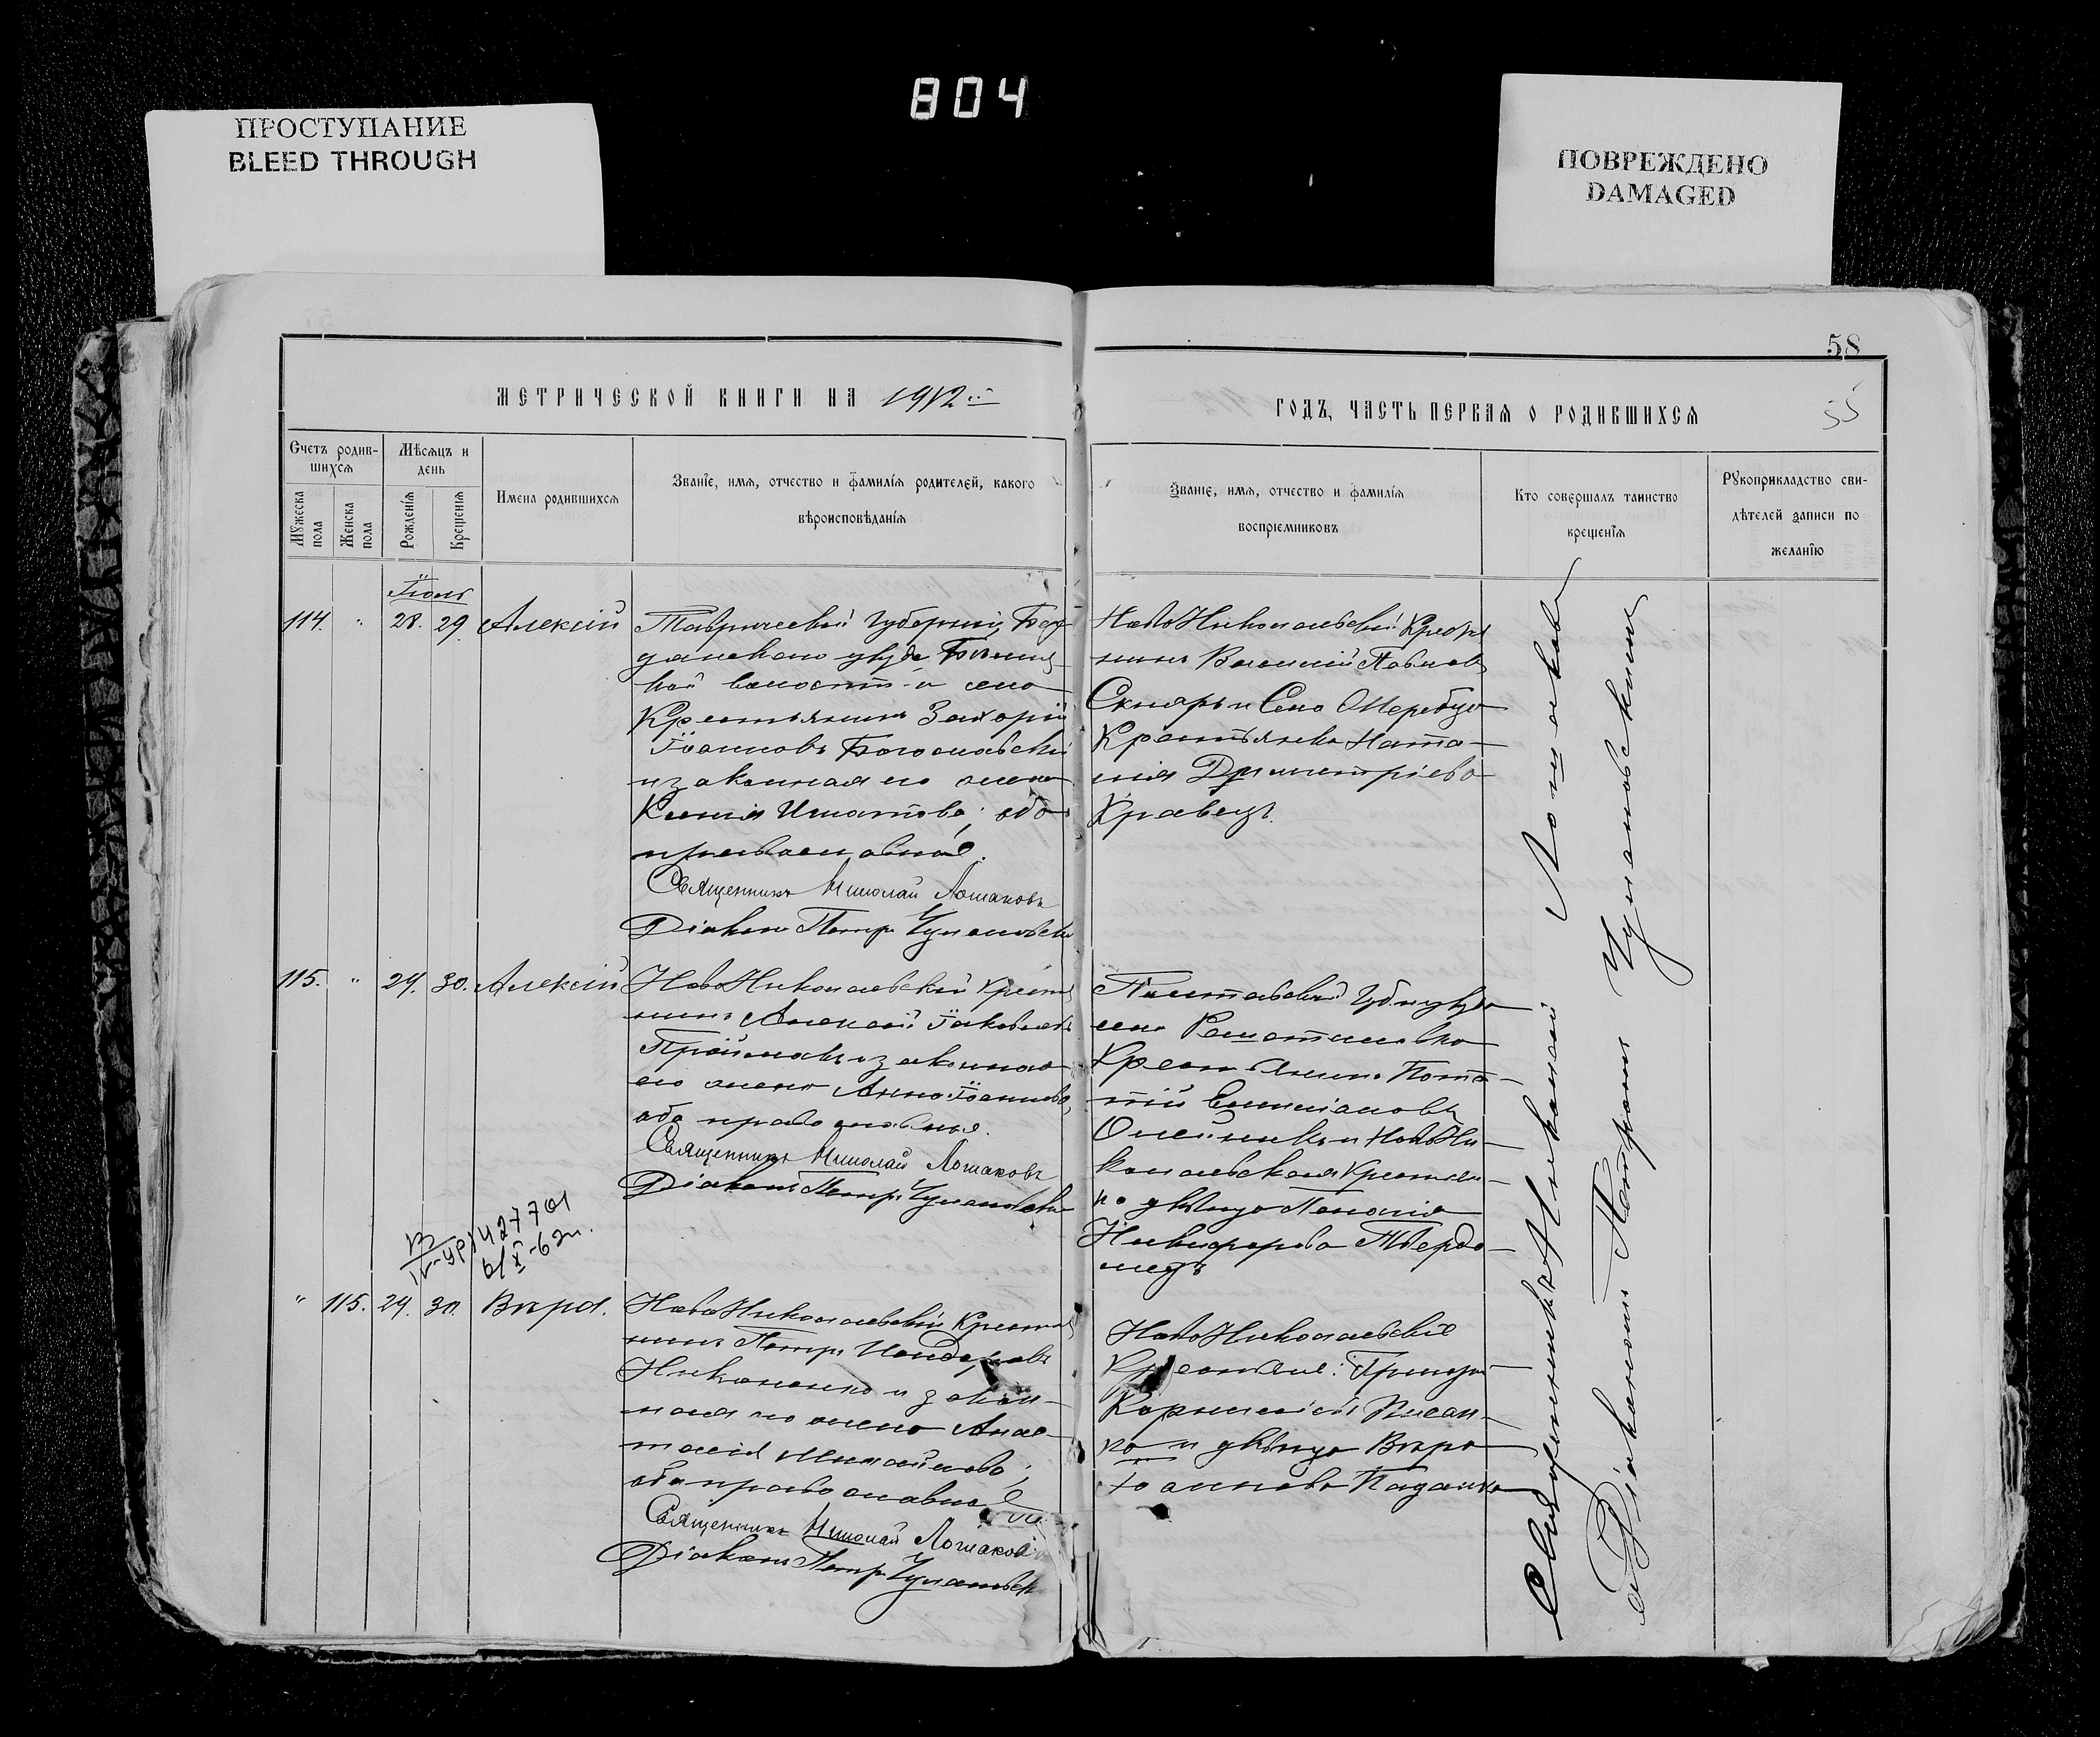 804
ПРОСТУПАНИЕ
BLEED THROUGH
ПОВРЕЖДЕНО
DAMAGED
58
55
МЕТРИЧЕСКОЙ КНИГИ НА 1912й
ГОДЪ, ЧАСТЬ ПЕРВАЯ О РОДИВШИХСЯ
Счетъ родив-
шихся
Мѣсяцъ и
день
Мужеска
пола
Женска
пола
Рожденія
Крещенія
Имена родившихся
Званіе, имя, отчество и фамилія родителей, какого
вѣроисповѣданія
Званіе, имя, отчество и фамилія
воспріемниковъ
Кто совершалъ таинство
крещенія
Рукоприкладство сви-
дѣтелей записи по
желанію
114. " 28. 29. Алексій
Таврической Губерніи, Бер
дянскаго уѣзда
волости и села
Крестьянинъ Захарій
Іоанновъ Богославскій
и законная его жена
Ксенія Игнатова, оба
православные.
Священникъ Николай Лошаковъ
Діаконъ Петръ Чулановскій
НовоНиколаевскій Крестья
нинъ Василій Павловъ
Скляръ и Села
Крестьянка Ната-
лія Димитріева
Кравецъ.
115. " 29. 30. Алексій
НовоНиколаевскій Крестья
нинъ Алексій Іаковлевъ
и законная
его жена Анна Іоаннова,
оба православные.
Священникъ Николай Лошаковъ
Діаконъ Петръ Чулановскій
Полтавской Губ. и уѣзда
села Решетиловка
Крестьянинъ Пота-
пій Емиліановъ
Олейникъ и НовоНи-
колаевская Крестьян-
ка дѣвица Пелагія
Никифорова Твердо-
медъ
427701
" 115. 29. 30. Вѣра.
НовоНиколаевскій Крестья
нинъ Петръ
Никоненко и закон-
ная его жена Анас-
тасія Михайлова,
оба православные
Священникъ Николай Лошаковъ
Діаконъ Петръ Чулановск
НовоНиколаевскіе
Крестьяне: Григорій
Корниліевъ Писан-
ко и дѣвица Вѣра
Іоаннова Падалка
Священникъ Николай Лошаковъ
Діакономъ Петромъ Чулановскимъ